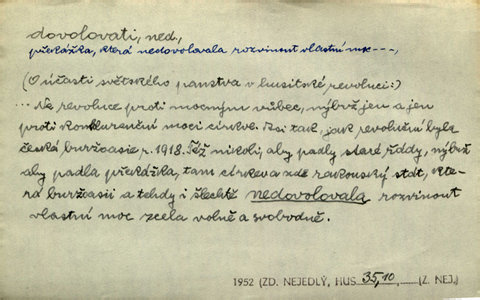 dovolovati, ned.,
překážka, která nedovolovala rozvinout vlastní moc---,
(O účasti světského panstva v husitské revoluci:)
... Ne revoluce proti mocným vůbec, nýbrž jen a jen
proti konkurenční moci církve. Asi tak, jak revoluční byla
česká buržoasie r. 1918. Též nikoli, aby padly staré řády, nýbrž
aby padla překážka, tam církev a zde rakouský stát, kte-
rá buržoasii a tehdy i šlechtě nedovolovala rozvinout
vlastní moc zcela volně a svobodně.
1952 (ZD. NEJEDLÝ, HUS 35,10, (Z. NEJ.)